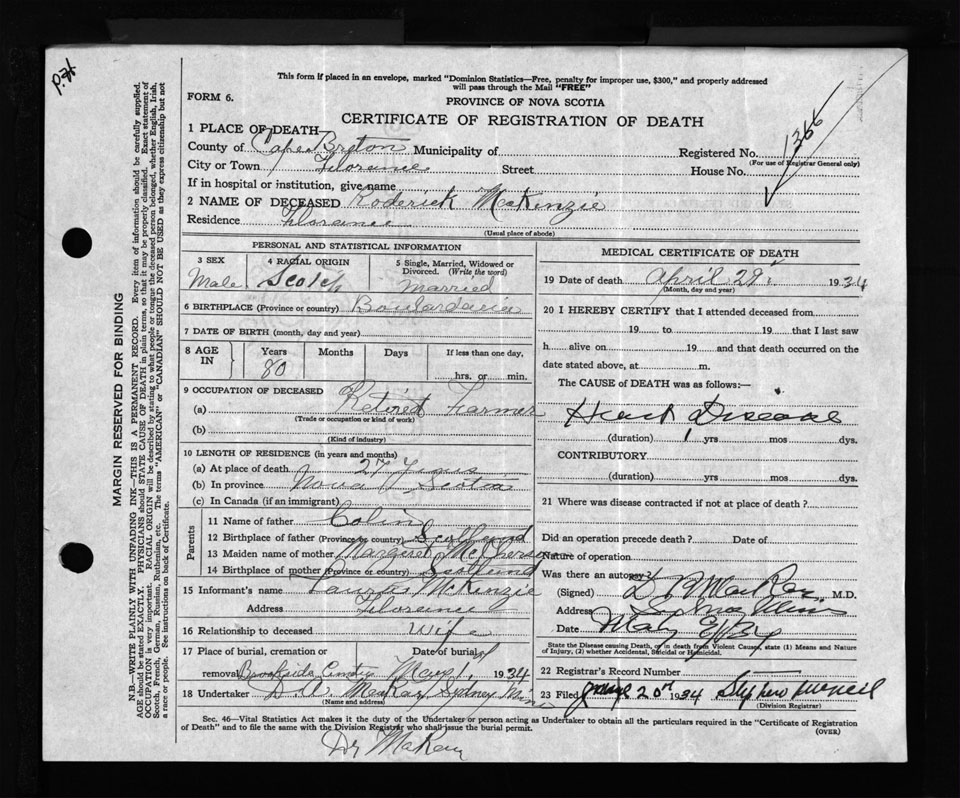 p.71
This form if placed in an envelope, marked "Dominion Statistics—Free, penalty for improper use, $300," and properly addressed
will pass through the Mail "FREE"
FORM 6.
PROVINCE OF NOVA SCOTIA
CERTIFICATE OF REGISTRATION OF DEATH
1366
1 PLACE OF DEATH
County of Cape Breton Municipality of
Registered No.
(For use of Registrar General only)
City or Town Florence Street House No.
If in hospital or institution, give name
2 NAME OF DECEASED Roderick McKenzie
Residence Florence
(Usual place of abode)
MARGIN RESERVED FOR BINDING
N.B.—WRITE PLAINLY WITH UNFADING INK—THIS IS A PERMANENT RECORD. Every item of information should be carefully supplied.
AGE should be stated EXACTLY. PHYSICIANS should STATE CAUSE OF DEATH in plain terms, so that it may be properly classified. Exact statement of
OCCUPATION is very important. RACIAL ORIGIN will be described by stating to what people or tongue the deceased person belonged, whether English, Irish,
Scotch, French, German, Russian, Ruthenian, etc. The terms "AMERICAN" or "CANADIAN" SHOULD NOT BE USED as they express citizenship but not
a race or people. See instructions on back of Certificate.
PERSONAL AND STATISTICAL INFORMATION
3 SEX
Male
4 RACIAL ORIGIN
Scotch
5 Single, Married, Widowed or
Divorced. (Write the word)
Married
6 BIRTHPLACE (Province or country) Boulardarie
7 DATE OF BIRTH (month, day and year)
8 AGE
IN
Years
80
Months
Days
If less than one day,
hrs. or min.
9 OCCUPATION OF DECEASED
(a) Retired Farmer
(Trade or occupation or kind of work)
(b)
(Kind of industry)
10 LENGTH OF RESIDENCE (in years and months)
(a) At place of death 27 Years
(b) In province Nova Scotia
(c) In Canada (if an immigrant)
Parents
11 Name of father Colin
12 Birthplace of father (Province or country) Scotland
13 Maiden name of mother Margaret McPherson
14 Birthplace of mother (Province or country) Scotland
15 Informant's name McKenzie
Address Florence
16 Relationship to deceased Wife
17 Place of burial, cremation or Date of burial
removal Brookside Cmtry May 1, 1934
18 Undertaker D.A. MacKay, Sydney Mines
(Name and address)
MEDICAL CERTIFICATE OF DEATH
19 Date of death April 29, 1934
(Month, day and year)
20 I HEREBY CERTIFY that I attended deceased from
19 to 19 that I last saw
h alive on 19 and that death occurred on the
date stated above, at m.
The CAUSE of DEATH was as follows:—
Heart Disease
(duration) 1 yrs mos dys.
CONTRIBUTORY
(duration) yrs mos dys.
21 Where was disease contracted if not at place of death?
Did an operation precede death? Date of
Nature of operation
Was there an autopsy?
(Signed) M.D.
Address Sydney Mines
Date May
State the Disease causing Death, or in death from Violent Causes, state (1) Means and Nature
of Injury, (2) whether Accidental, Suicidal or Homicidal.
22 Registrar's Record Number
23 Filed 1934
(Division Registrar)
Sec. 46—Vital Statistics Act makes it the duty of the Undertaker or person acting as Undertaker to obtain all the particulars required in the "Certificate of Registration
of Death" and to file the same with the Division Registrar who shall issue the burial permit.
(OVER)
Dr